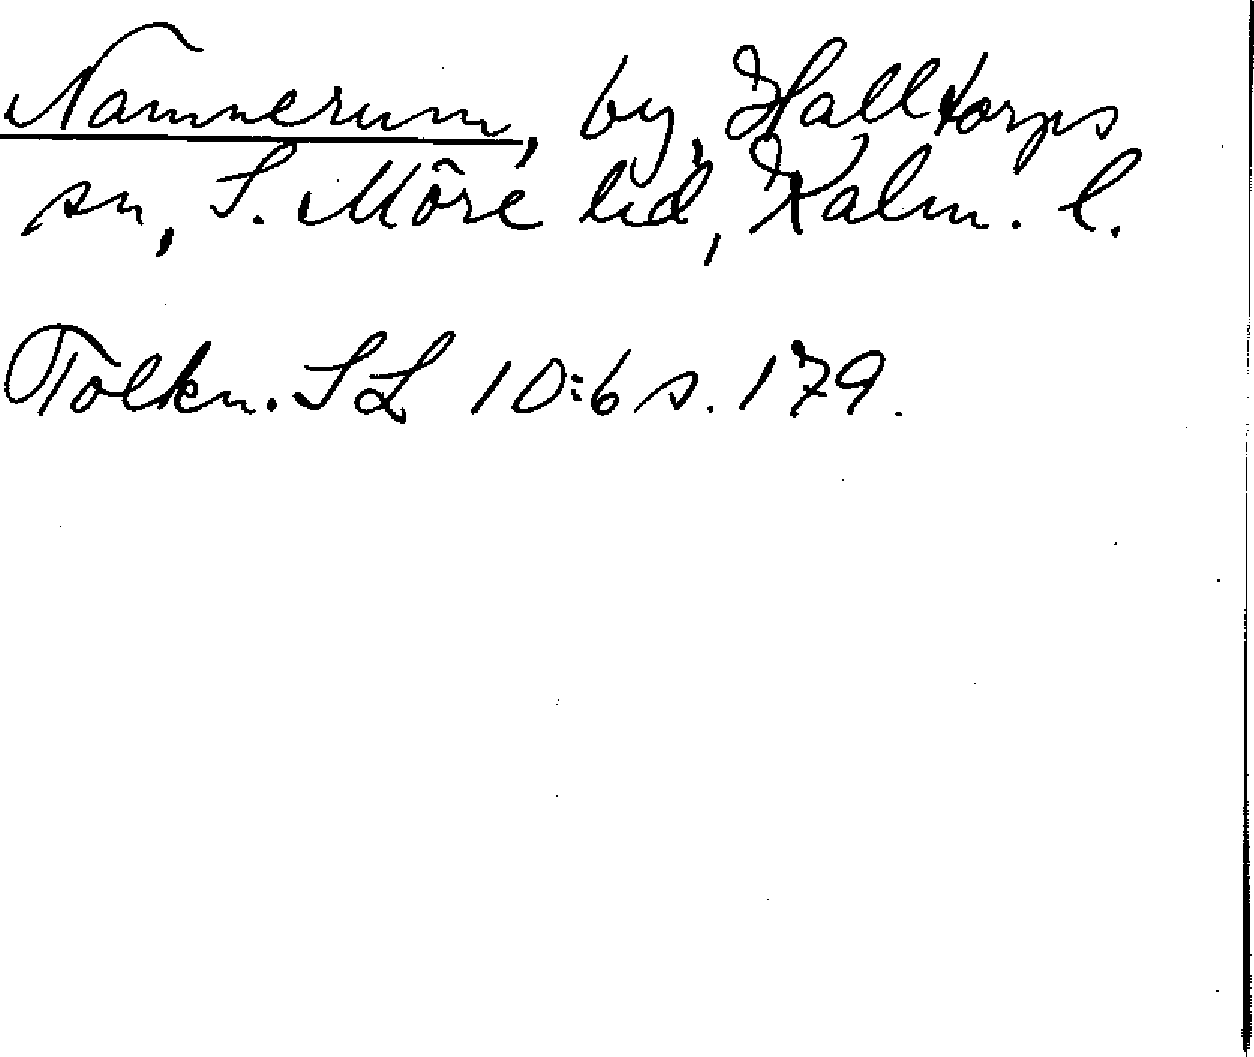 Nannerum, by, Halltorps
sn, S. Möre hd, Kalm. l.
Tolkn. SL 10:6 s. 179.